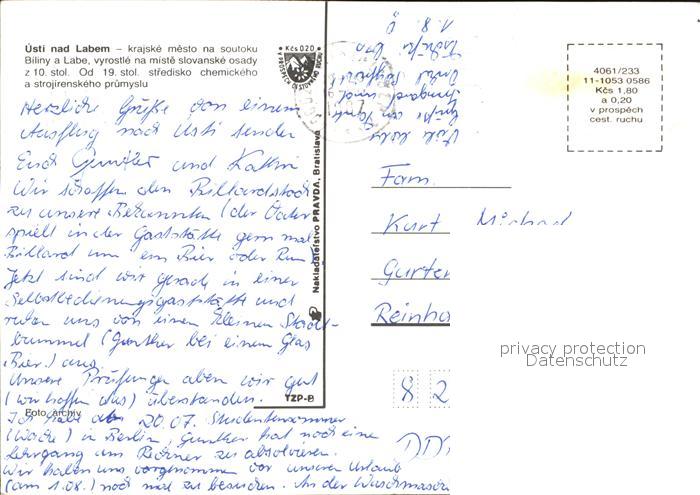 Ústí nad Labem – krajské město na soutoku
Bíliny a Labe, vyrostlé na místě slovanské osady
z 10. stol. Od 19. stol. středisko chemického
a strojírenského průmyslu
Herzliche Grüße von einem
Ausflug nach Usti senden
Euch Gunther und Katrin
Wir schaffen den Billardstock
zu unsere Bekannten (der Vater
spielt in der Gaststätte gern mal
Billard um ein Bier oder Rum).
Jetzt sind wir gerade in einer
Selbstbedienungsgaststätte und
ruhen uns von einem kleinen Stadt-
bummel (Gunther bei einem Glas
Bier) aus.
Unsere Prüfungen haben wir gut
(wir hoffen das) überstanden.
Ich habe ab 20.07. Studentensommer
(Wache) in Berlin, Gunther hat noch eine
Lehrgang am Rechner zu absolvieren.
Wir haben uns vorgenommen vor unserem Urlaub
(am 1.08.) noch mal zu besuchen. An der Waschmasch
Foto: archiv
Kčs 0,20
Nakladateľstvo PRAVDA, Bratislava
TZP-B
Viele liebe
Grüße an
und
1.8.
4061/233
11-1053 0586
Kčs 1,80
a 0,20
v prospěch
cest. ruchu
Fam.
Kurt Michael
Garten
Reinha
8 2
DD
privacy protection
Datenschutz